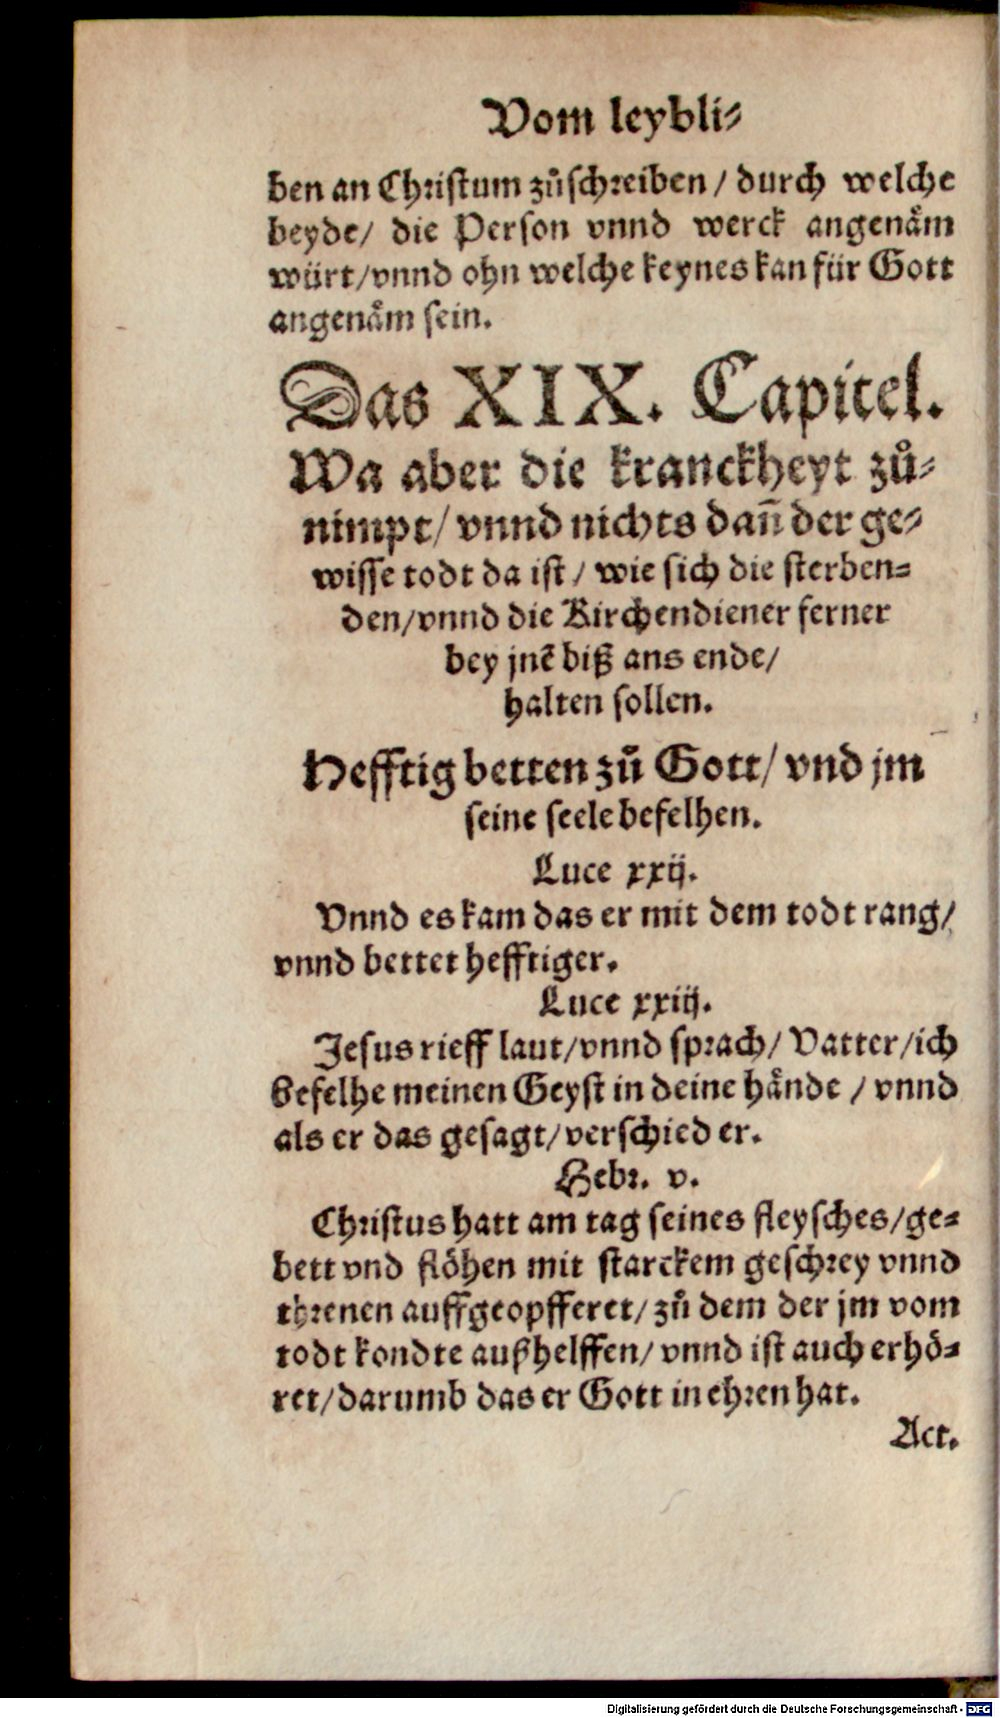 Vom leybli⸗
ben an Christum zůschreiben / durch welche
beyde/ die Person vnnd werck angenåm
würt/vnnd ohn welche keynes kan für Gott
angenåm sein.
Das XIX. Capitel.
Wa aber die kranckheyt zů⸗
nimpt/ vnnd nichts dañ der ge⸗
wisse todt da ist / wie sich die sterben⸗
den/vnnd die Kirchendiener ferner
bey jnē biß ans ende/
halten sollen.
Hefftig betten zů Gott/ vnd jm
seine seele befelhen.
Luce xxij.
Vnnd es kam das er mit dem todt rang/
vnnd bettet hefftiger.
Luce xxiij.
Jesus rieff laut/vnnd sprach/ Vatter/ich
befelhe meinen Geyst in deine hånde / vnnd
als er das gesagt/verschied er.
Hebr. v.
Christus hatt am tag seines fleysches/ge⸗
bett vnd flöhen mit starckem geschrey vnnd
threnen auffgeopfferet/ zů dem der jm vom
todt kondte außhelffen/ vnnd ist auch erhö⸗
ret/darumb das er Gott in ehren hat.
Act.
Digitalisierung gefördert durch die Deutsche Forschungsgemeinschaft - DFG